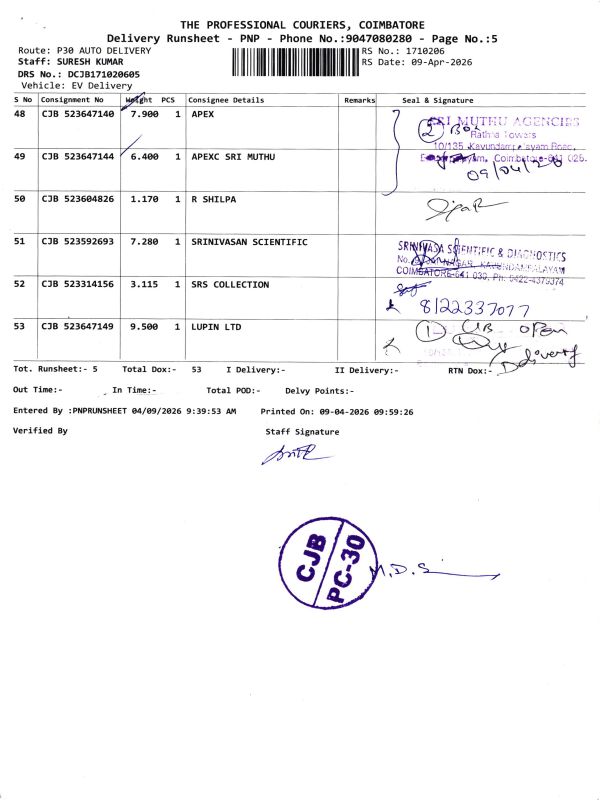 THE PROFESSIONAL COURIERS, COIMBATORE
Delivery Runsheet - PNP - Phone No.:9047080280 - Page No.:5
Route: P30 AUTO DELIVERY
RS No.: 1710206
Staff: SURESH KUMAR
RS Date: 09-Apr-2026
DRS No.: DCJB171020605
Vehicle: EV Delivery
S No Consignment No Weight PCS Consignee Details Remarks Seal & Signature
48 CJB 523647140 7.900 1 APEX
SRI MUTHU AGENCIES
2 Box
Rathna Towers
10/135, Kavundampalayam Road,
Coimbatore-641 026.
49 CJB 523647144 6.400 1 APEXC SRI MUTHU
09/04/26
50 CJB 523604826 1.170 1 R SHILPA
51 CJB 523592693 7.280 1 SRINIVASAN SCIENTIFIC
SRINIVASA SCIENTIFIC & DIAGNOSTICS
NAGAR, KAVUNDAMPALAYAM
COIMBATORE-641 030, Ph: 0422-4379374
52 CJB 523314156 3.115 1 SRS COLLECTION
8122337077
53 CJB 523647149 9.500 1 LUPIN LTD
1 C/B open
Delivery
Tot. Runsheet:- 5 Total Dox:- 53 I Delivery:- II Delivery:- RTN Dox:-
Out Time:- In Time:- Total POD:- Delvy Points:-
Entered By :PNPRUNSHEET 04/09/2026 9:39:53 AM Printed On: 09-04-2026 09:59:26
Verified By Staff Signature
CJB
PC-30
M.D.S